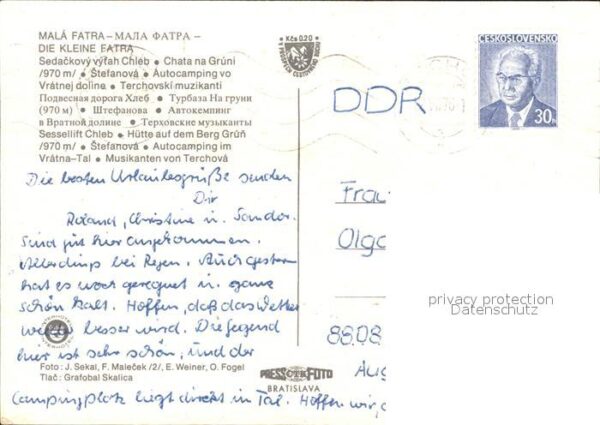 MALÁ FATRA – МАЛА ФАТРА –
DIE KLEINE FATRA
Sedačkový výťah Chleb • Chata na Grúni
/970 m/ • Štefanová • Autocamping vo
Vrátnej doline • Terchovskí muzikanti
Подвесная дорога Хлеб • Турбаза На груни
(970 м) • Штефанова • Автокемпинг
в Вратной долине • Терховские музыканты
Sessellift Chleb • Hütte auf dem Berg Grúň
/970 m/ • Štefanová • Autocamping im
Vrátna–Tal • Musikanten von Terchová
Die besten Urlaubsgrüße senden
Dir
Roland, Christine u. Sandor.
Sind gut hier angekommen.
Allerdings bei Regen. Auch gestern
hat es noch geregnet u. ganz
schön kalt. Hoffen, daß das Wetter
besser wird. Die Gegend
hier ist sehr schön, und der
Campingplatz liegt direkt in Tal. Hoffen wir,
Foto: J. Sekal, F. Maleček /2/, E. Weiner, O. Fogel
Tlač: Grafobal Skalica
Kčs 0,20
PRESSFOTO
BRATISLAVA
ČESKOSLOVENSKO
30
DDR
Frau
Olga
privacy protection
Datenschutz